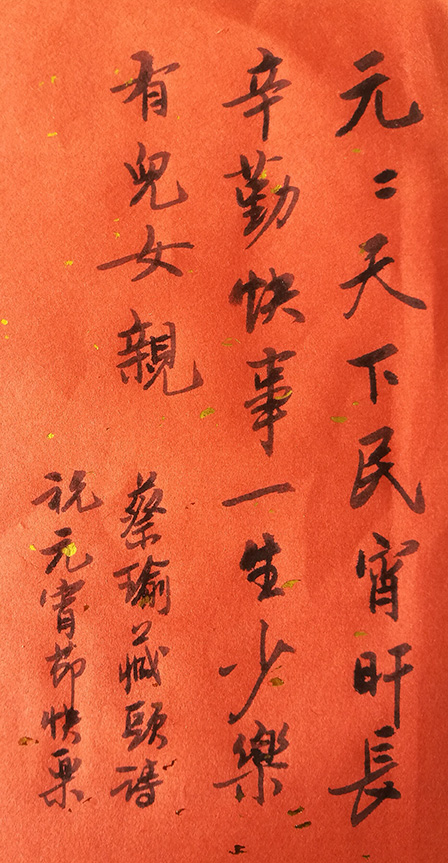 元〻天下民宵旰長
辛勤快事一生少樂
有兒女親
蔡瑜藏頭詩
祝元宵節快樂